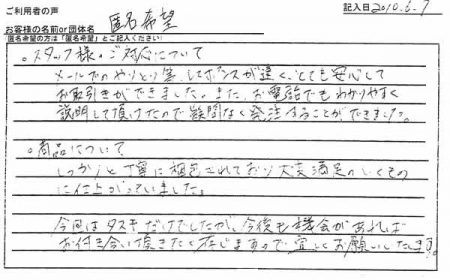 ご利用者の声
記入日 2010.6.7
お客様の名前or団体名 匿名希望
(匿名希望の方は「匿名希望」とご記入ください)
○スタッフ様のご対応について
メールでのやりとり等、レスポンスが速く、とても安心して
お取引きができました。また、お電話でもわかりやすく
説明して頂けたので疑問なく発注することができました。
○商品について
しっかりと丁寧に梱包されており大変満足のいくもの
に仕上がっていました。
今回はタスキだけでしたが、今後も機会があれば
お付き合い頂きたく存じますので宜しくお願いします